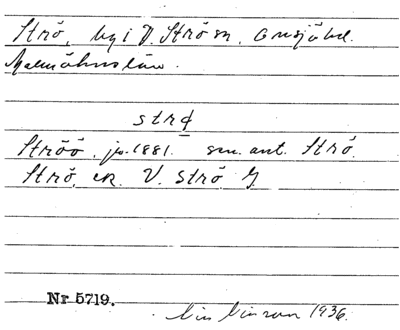 Strö, by i V. Strö sn, Onsjö hd.
Malmöhus län.
strø
Ströö. jr. 1881. sen. ant. Strö.
Strö, ek. V. Strö G.
Nr 5719.
1936.